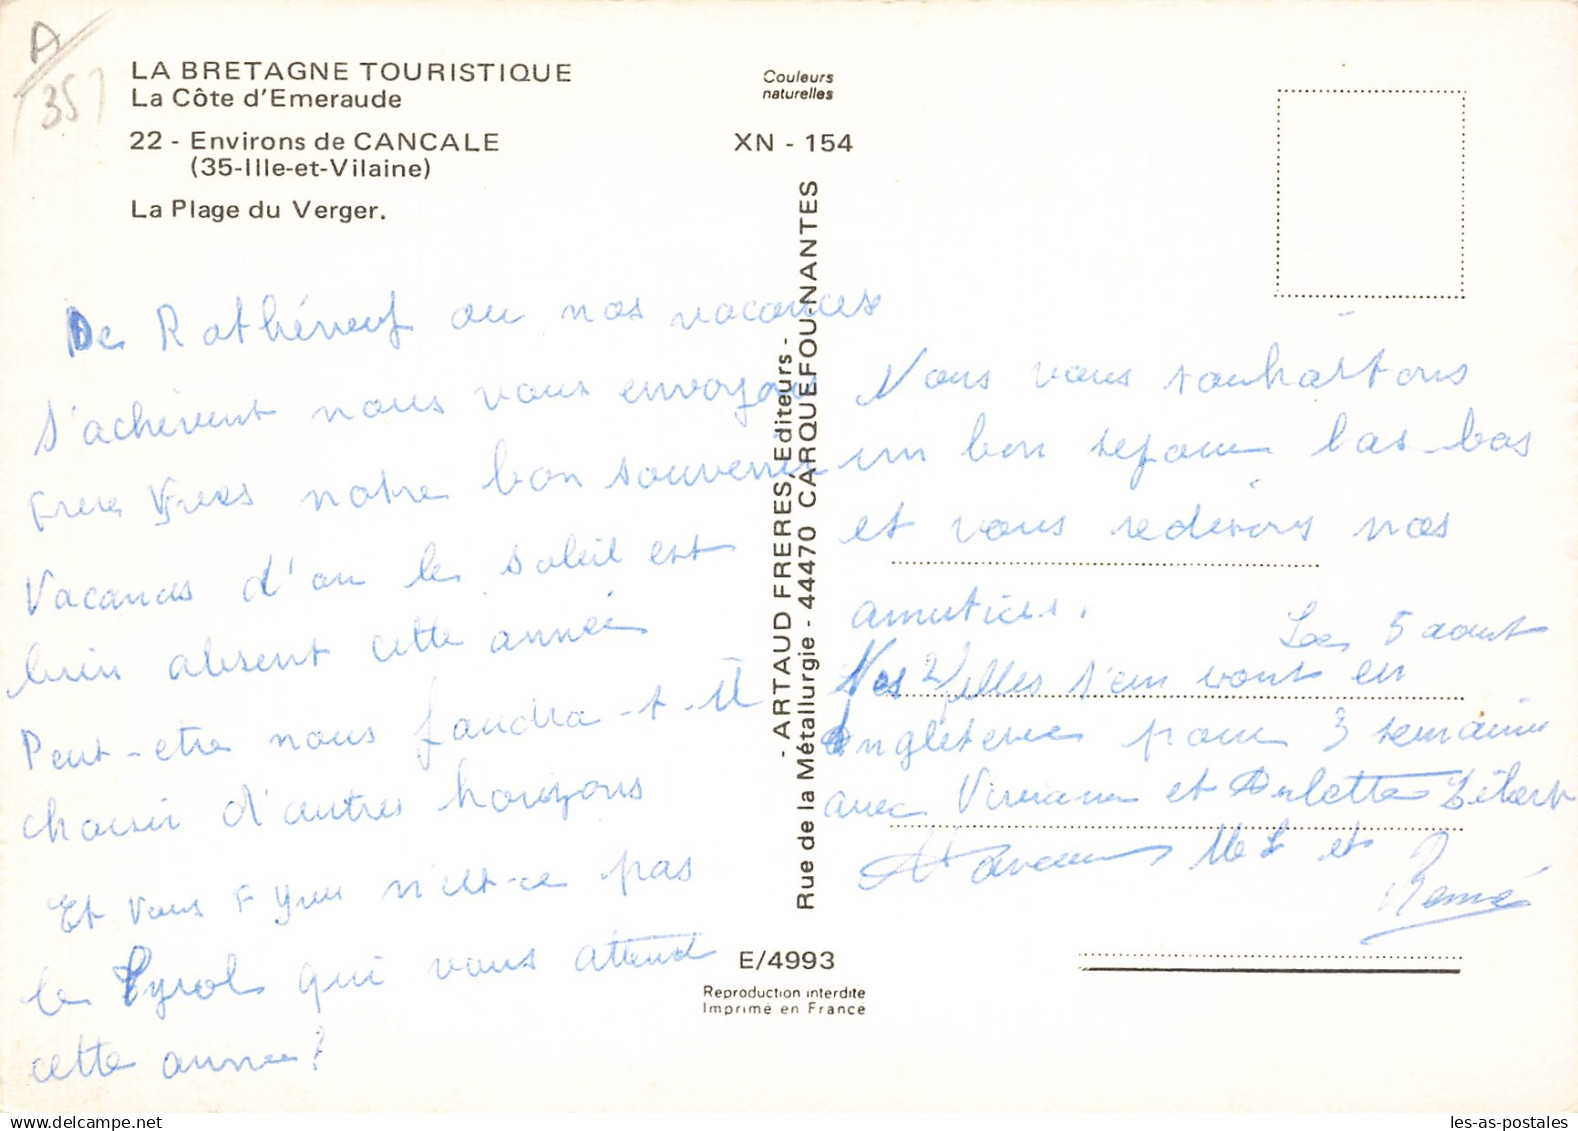 A
35
LA BRETAGNE TOURISTIQUE
La Côte d'Emeraude
22 - Environs de CANCALE
(35-Ille-et-Vilaine)
La Plage du Verger.
Couleurs
naturelles
XN - 154
- ARTAUD FRERES, Editeurs -
Rue de la Métallurgie - 44470 CARQUEFOU-NANTES
E/4993
Reproduction interdite
Imprimé en France
De Rothéneuf ou nos vacances
s'achèvent nous vous envoyons
notre bon souvenir
Vacances d'ou le soleil est
bien absent cette année
Peut-etre nous faudra-t-il
choisir d'autres horizons
Et vous n'est-ce pas
le Tyrol qui vous attend
cette année ?
Nous vous souhaitons
un bon sejour las-bas
et vous redisons nos
amities.
Le 5 aout
Nos 2 filles s'en vont en
Angleterre pour 3 semaines
avec et Arlette
et
René
les-as-postales